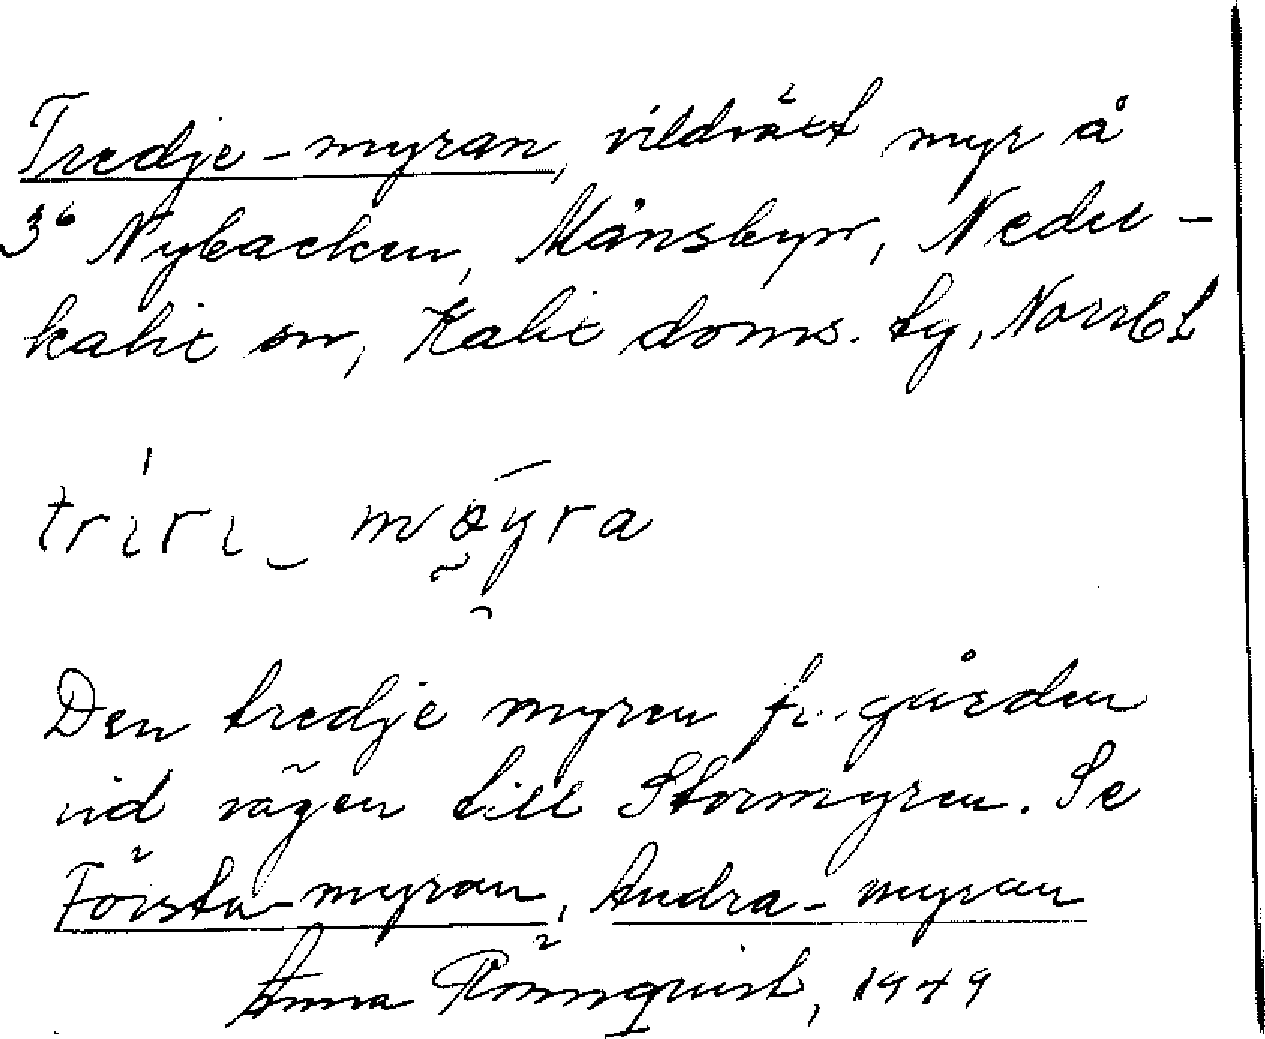 Tredje-myran, vildväxt myr å
3⁶ Nybacken, Månsbyn, Neder-
kalix sn, Kalix doms. tg, Norrb L
triri_ möyra
Den tredje myren fr. gården
vid vägen till Stormyren. Se
Första-myran, Andra-myran
Anna Rönnquist, 1949